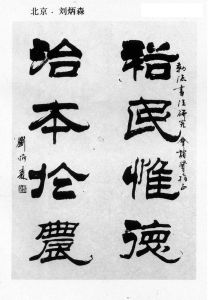 北京·刘炳森
裕民惟德
治本於農
劉炳森